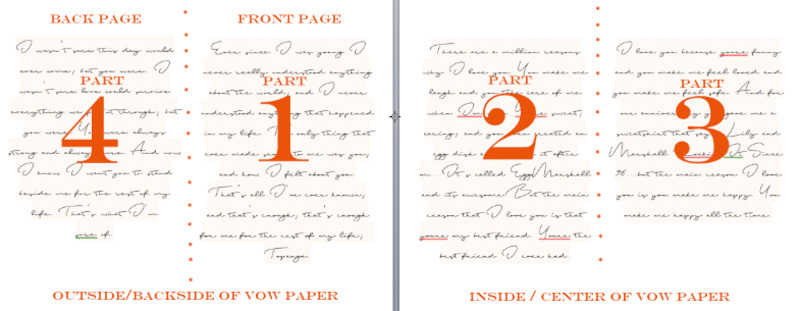 BACK PAGE
I wasn't sure this day would
ever come; but you were. I
wasn't sure love could survive
everything we through; but
you were. You were always
strong and always sure. And now
I know I want you to stand
beside me for the rest of my
life. That's what I'm
sure of.
PART
4
FRONT PAGE
Ever since I was young I
never really understood anything
about the world, and I never
understood anything that happened
in my life. The only thing that
ever made sense to me was you;
and how I felt about you.
That's all I've ever known;
and that's enough; that's enough
for me for the rest of my life;
Topanga.
PART
1
OUTSIDE/BACKSIDE OF VOW PAPER
There are a million reasons
why I love you. You make me
laugh and you take care of me
when sweet;
caring; and you even created an
egg dish it after
me. It's called Eggs Marshall
and its awesome. But the main
reason that I love you is that
youre my best friend. Youre the
best friend I ever had.
PART
2
I love you because youre funny
and you make me feel loved and
you make me feel safe. And for
our anniversary you gave me a
sweatshirt that says Lily and
Marshall It Since
96. but the main reason I love
you is you make me happy. You
make me happy all the time.
PART
3
INSIDE / CENTER OF VOW PAPER